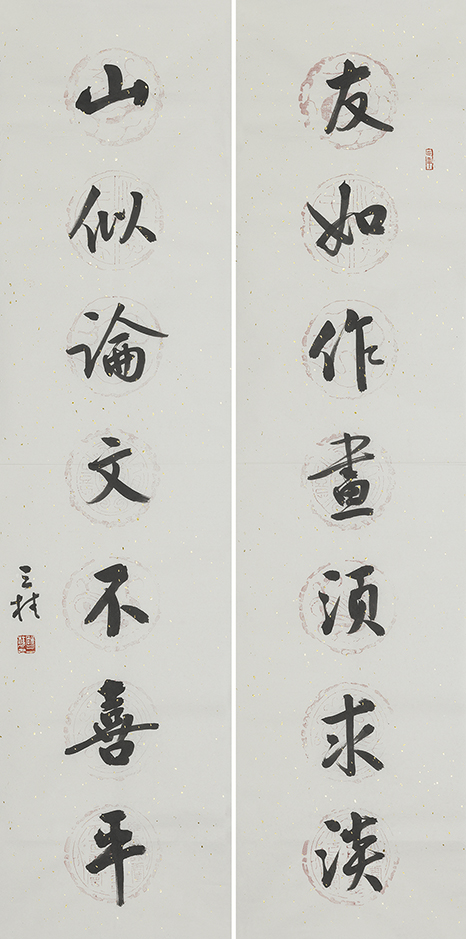 友如作畫須求淡
山似論文不喜平
三桂